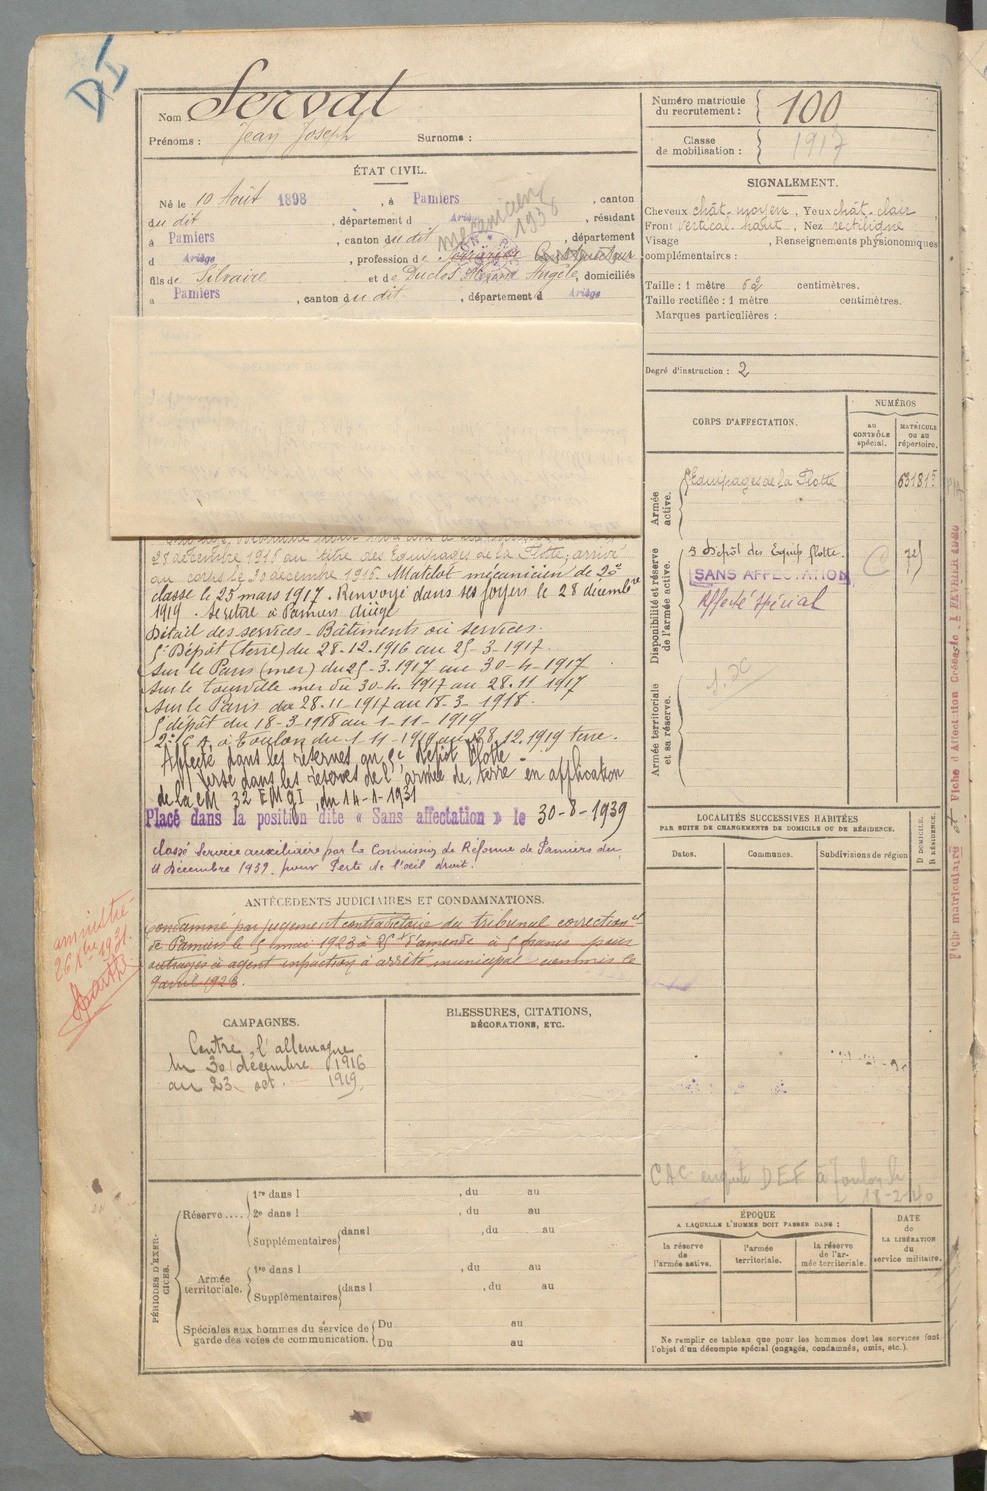 DI
Nom : Serval
Prénoms : Jean Joseph Surnoms :
Numéro matricule du recrutement : 100
Classe de mobilisation : 1917
ÉTAT CIVIL.
Né le 10 Août 1898, à Pamiers, canton
du dit, département d Ariège, résidant
à Pamiers, canton du dit, département
d Ariège, profession de
mécanicien 1938
fils de Silvaire et de Duclos Angèle, domiciliés
à Pamiers, canton du dit, département d Ariège
SIGNALEMENT.
Cheveux chât-moyen, Yeux chât-clair,
Front vertical-haut, Nez rectiligne
Visage , Renseignements physionomiques
complémentaires :
Taille : 1 mètre 62 centimètres.
Taille rectifiée : 1 mètre centimètres.
Marques particulières :
Degré d'instruction : 2
CORPS D'AFFECTATION.
NUMÉROS
au CONTRÔLE spécial.
MATRICULE ou au répertoire.
Armée active.
Equipages de la Flotte 63181 5
Disponibilité et réserve de l'armée active.
5 Dépôt des Equip flotte. C
SANS AFFECTATION
Affecté spécial
Armée territoriale et sa réserve.
28 décembre 1916 au titre des Equipages de la Flotte, arrivé
au corps le 30 décembre 1916. Matelot mécanicien de 2e
classe le 25 mars 1917. Renvoyé dans ses foyers le 28 décembre
1919. Se retire à Pamiers Ariège
Détail des services - Bâtiments ou services.
5e Dépôt (terre) du 28-12-1916 au 25-3-1917.
sur le Paris (mer) du 25-3-1917 au 30-4-1917
sur le Tourville mer du 30-4-1917 au 28-11 1917
sur le Paris du 28-11-1917 au 18-3-1918.
5 dépôt du 18-3 1918 au 1-11-1919
à Toulon du 1-11-1919 au 28.12.1919 terre.
Affecté dans les réserves au 5e Dépôt Flotte.
Versé dans les réserves de l'armée de terre en application
de la CM 32 EMGI du 14-1-1931
Placé dans la position dite « Sans affectation » le 30-8-1939
Classé Service auxiliaire par la Commission de Réforme de Pamiers du
11 Décembre 1939. pour Perte de l'œil droit.
ANTÉCÉDENTS JUDICIAIRES ET CONDAMNATIONS.
condamné par jugement contradictoire du tribunal correctionel
de Pamiers le 5 mai 1923 à 25 f d'amende à 5 francs pour
outrages à agent infraction à arrêté municipal commis le
9 avril 1923.
amnistié
26 Xbre 1931.
CAMPAGNES.
Contre l'allemagne
du 30 décembre 1916
au 23 oct. 1919.
BLESSURES, CITATIONS,
DÉCORATIONS, ETC.
LOCALITÉS SUCCESSIVES HABITÉES
PAR SUITE DE CHANGEMENTS DE DOMICILE OU DE RÉSIDENCE.
Dates.
Communes.
Subdivisions de région
D DOMICILE.
R RÉSIDENCE.
CAC enquête DEF à Toulon le
18-2-40
PÉRIODES D'EXERCICES.
Réserve ....
1re dans l , du au
2e dans l , du au
Supplémentaires dans l , du au
Armée territoriale.
1re dans l , du au
Supplémentaires dans l , du au
Spéciales aux hommes du service de garde des voies de communication.
Du au
Du au
ÉPOQUE
A LAQUELLE L'HOMME DOIT PASSER DANS :
la réserve de l'armée active.
l'armée territoriale.
la réserve de l'armée territoriale.
DATE de LA LIBÉRATION du service militaire.
Ne remplir ce tableau que pour les hommes dont les services font
l'objet d'un décompte spécial (engagés, condamnés, omis, etc.).
Fiche matriculaire et Fiche d'Affectation